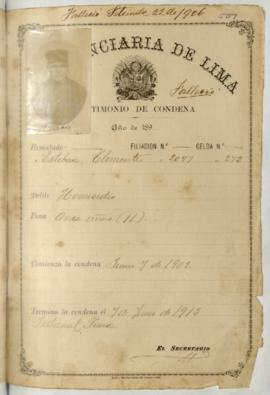 Falleció Setiembre 22 de 1906
NCIARIA DE LIMA
Falleció
TIMONIO DE CONDENA
Año de 189
Rematado Esteban Clemente FILIACION N.º 2071 CELDA N.º 272
Delito Homicidio
Pena Once años (11)
Comienza la condena Junio 7 de 1902
Termina la condena el 7 de Junio de 1913
Tribunal
EL SECRETARIO